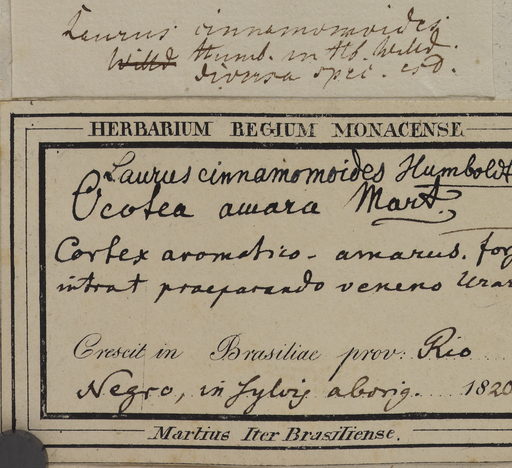 Laurus cinnamomoides.
Willd Humb. in Hb. Willd.
diversa spec. est.
HERBARIUM REGIUM MONACENSE
Laurus cinnamomoides Humboldt
Ocotea amara Mart.
Cortex aromatico-amarus.
intrat praeparando veneno Urar
Crescit in Brasiliae prov: Rio
Negro, in sylvis aborig. 1820
Martius Iter Brasiliense.